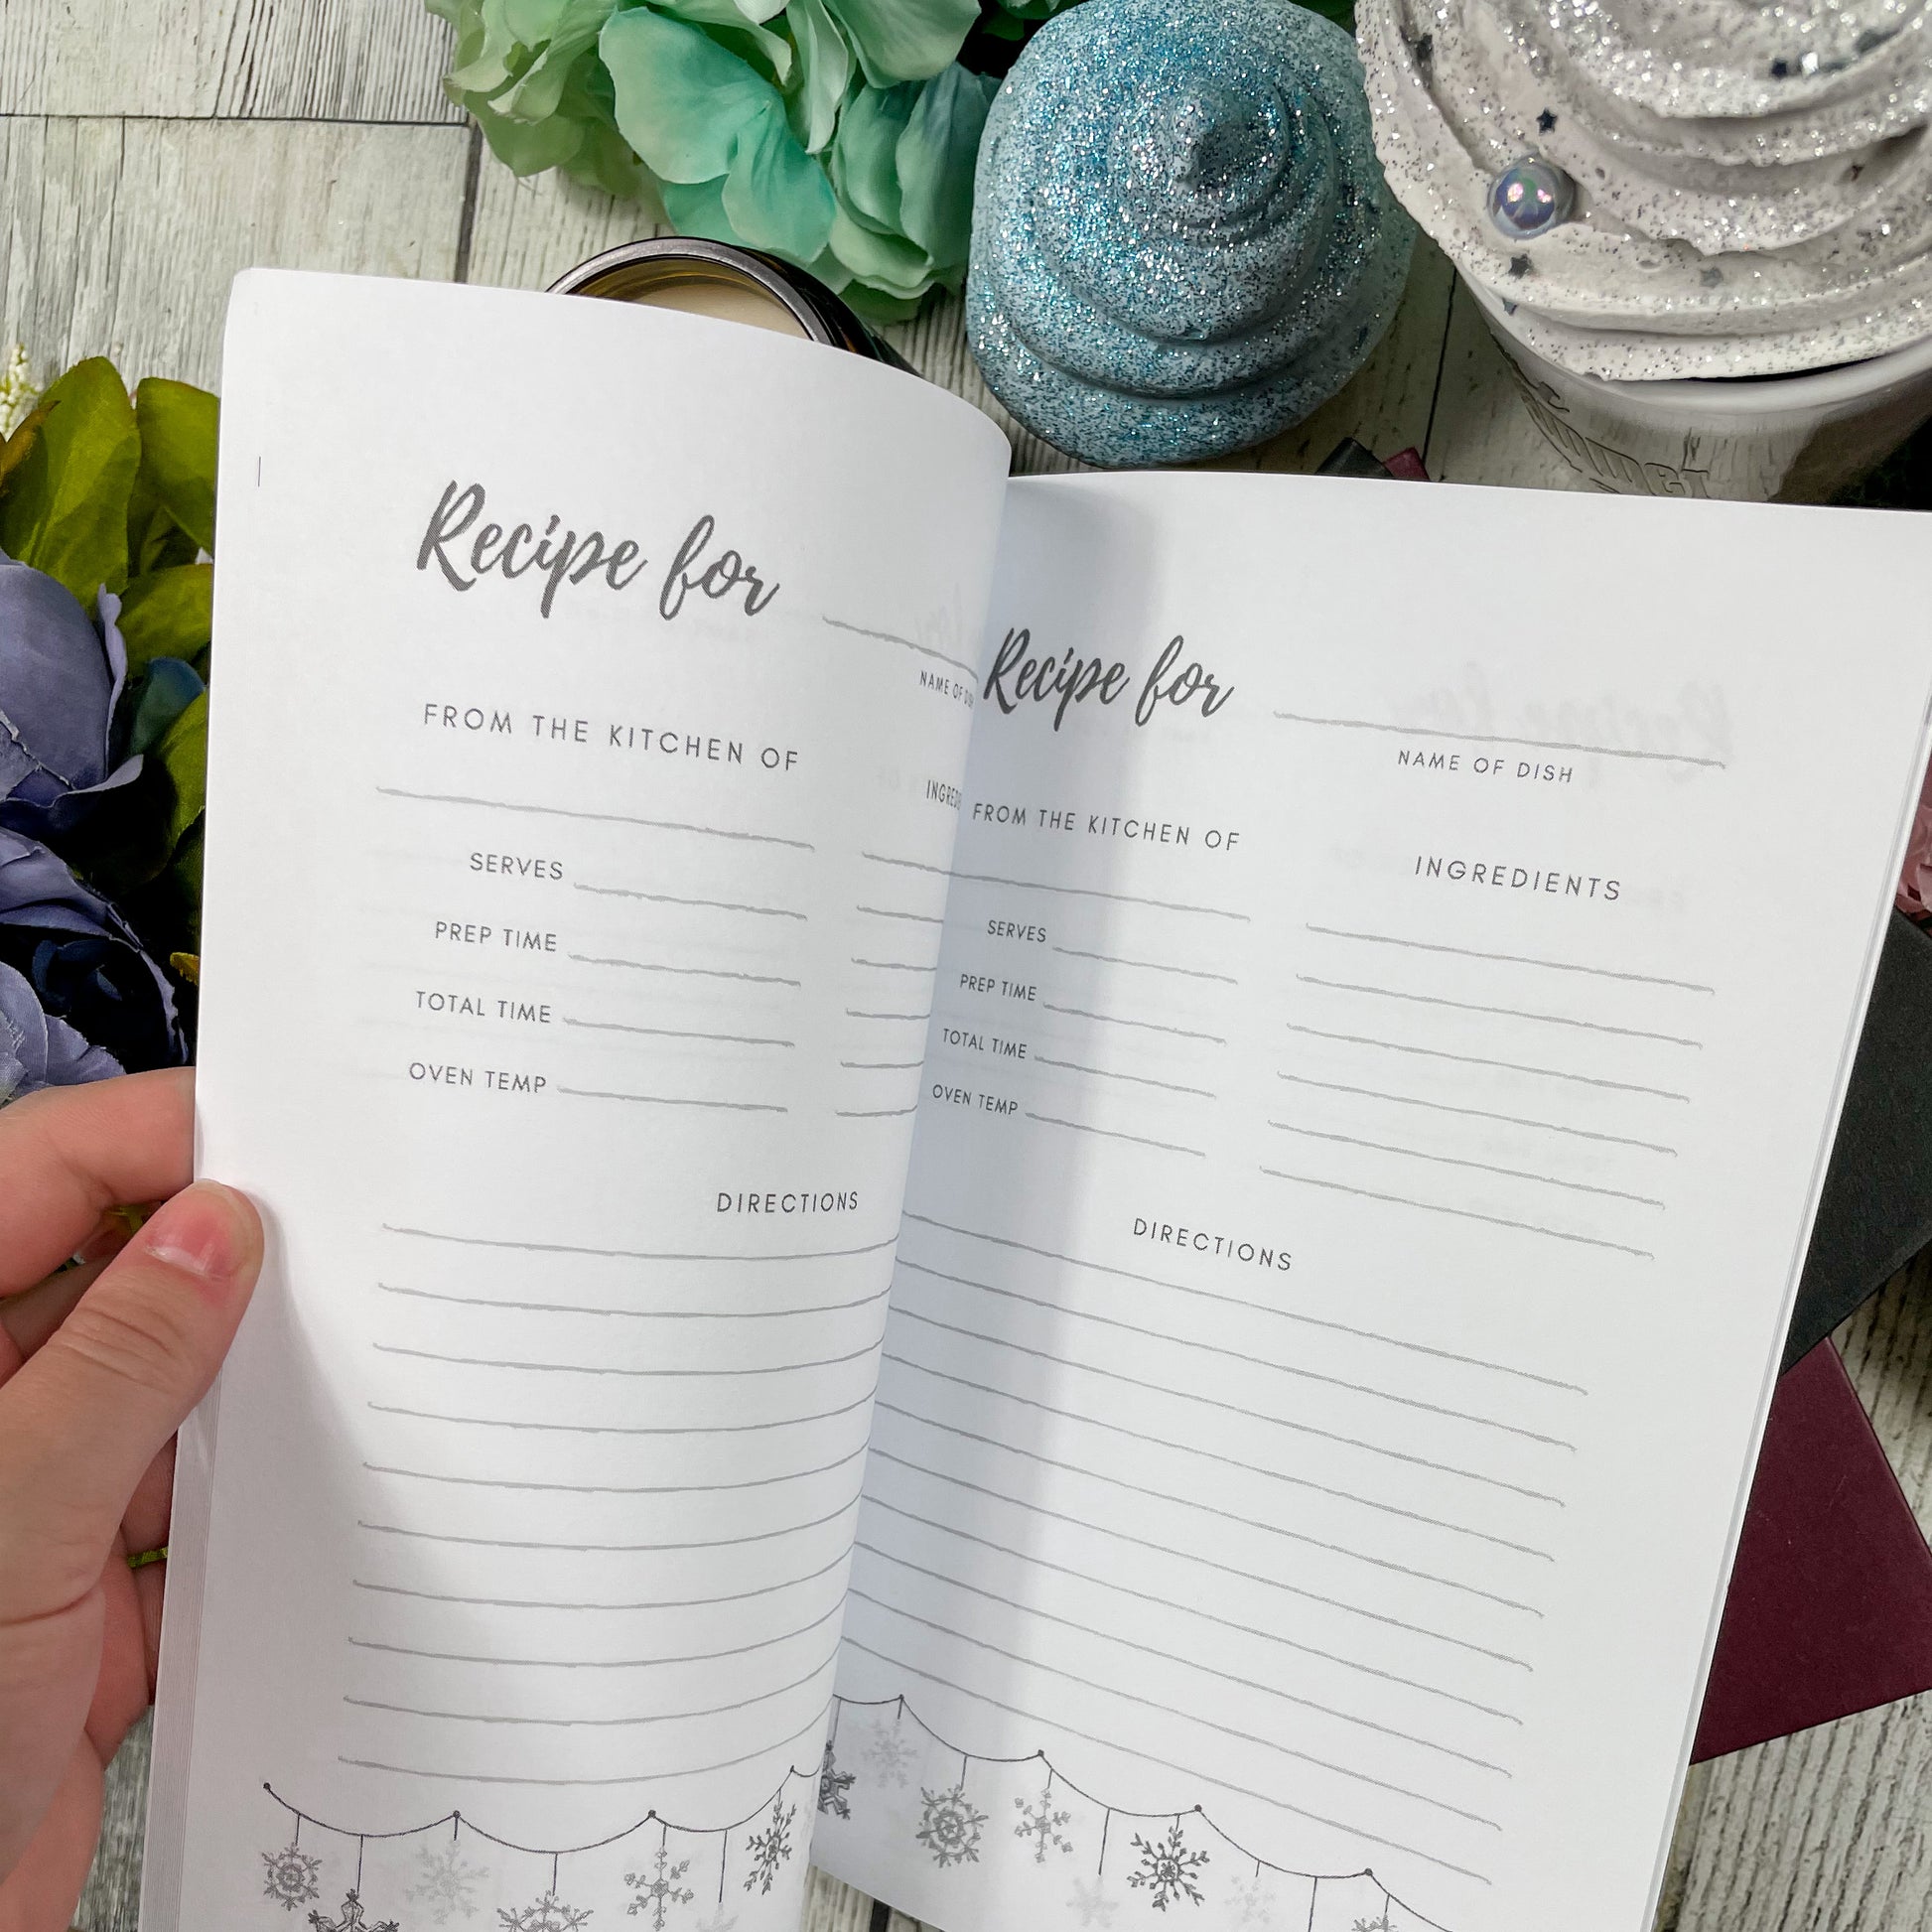 Recipe for
NAME OF DISH
FROM THE KITCHEN OF
SERVES
PREP TIME
TOTAL TIME
OVEN TEMP
DIRECTIONS
Recipe for
NAME OF DISH
FROM THE KITCHEN OF
INGREDIENTS
SERVES
PREP TIME
TOTAL TIME
OVEN TEMP
DIRECTIONS